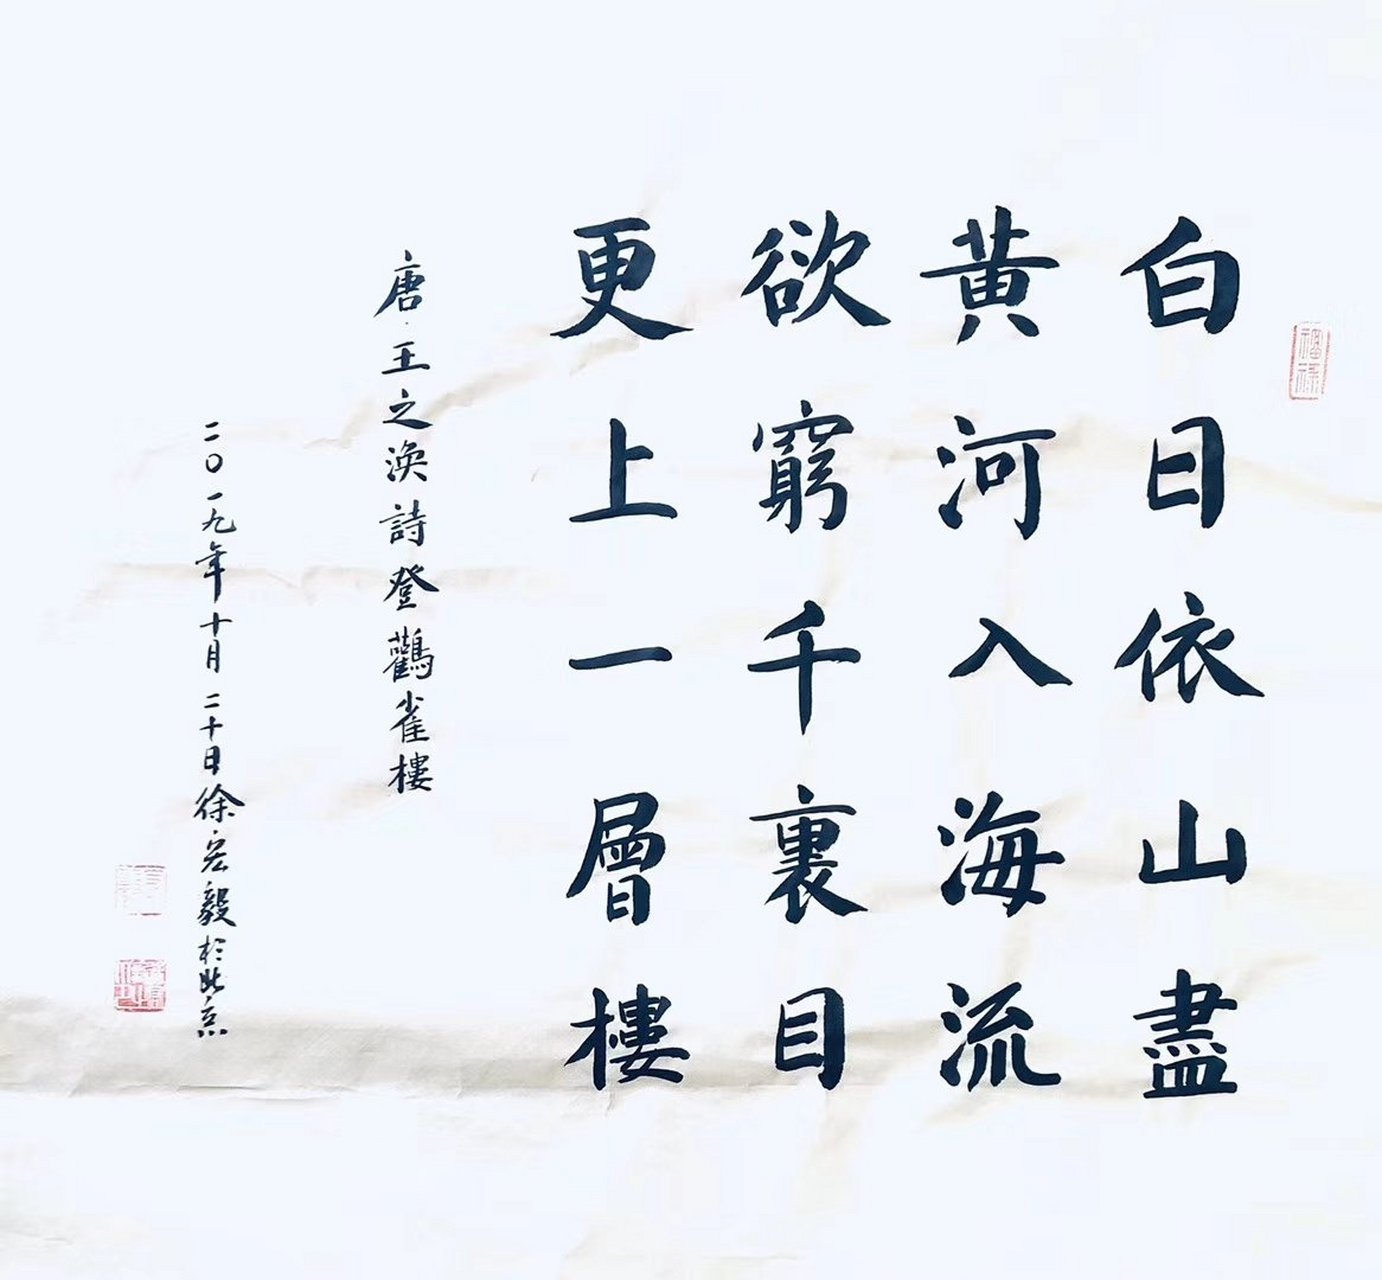 白日依山盡
黃河入海流
欲窮千裏目
更上一層樓
唐王之渙詩登鸛雀樓
二〇一九年十月二十日徐宏毅於北京
福祿